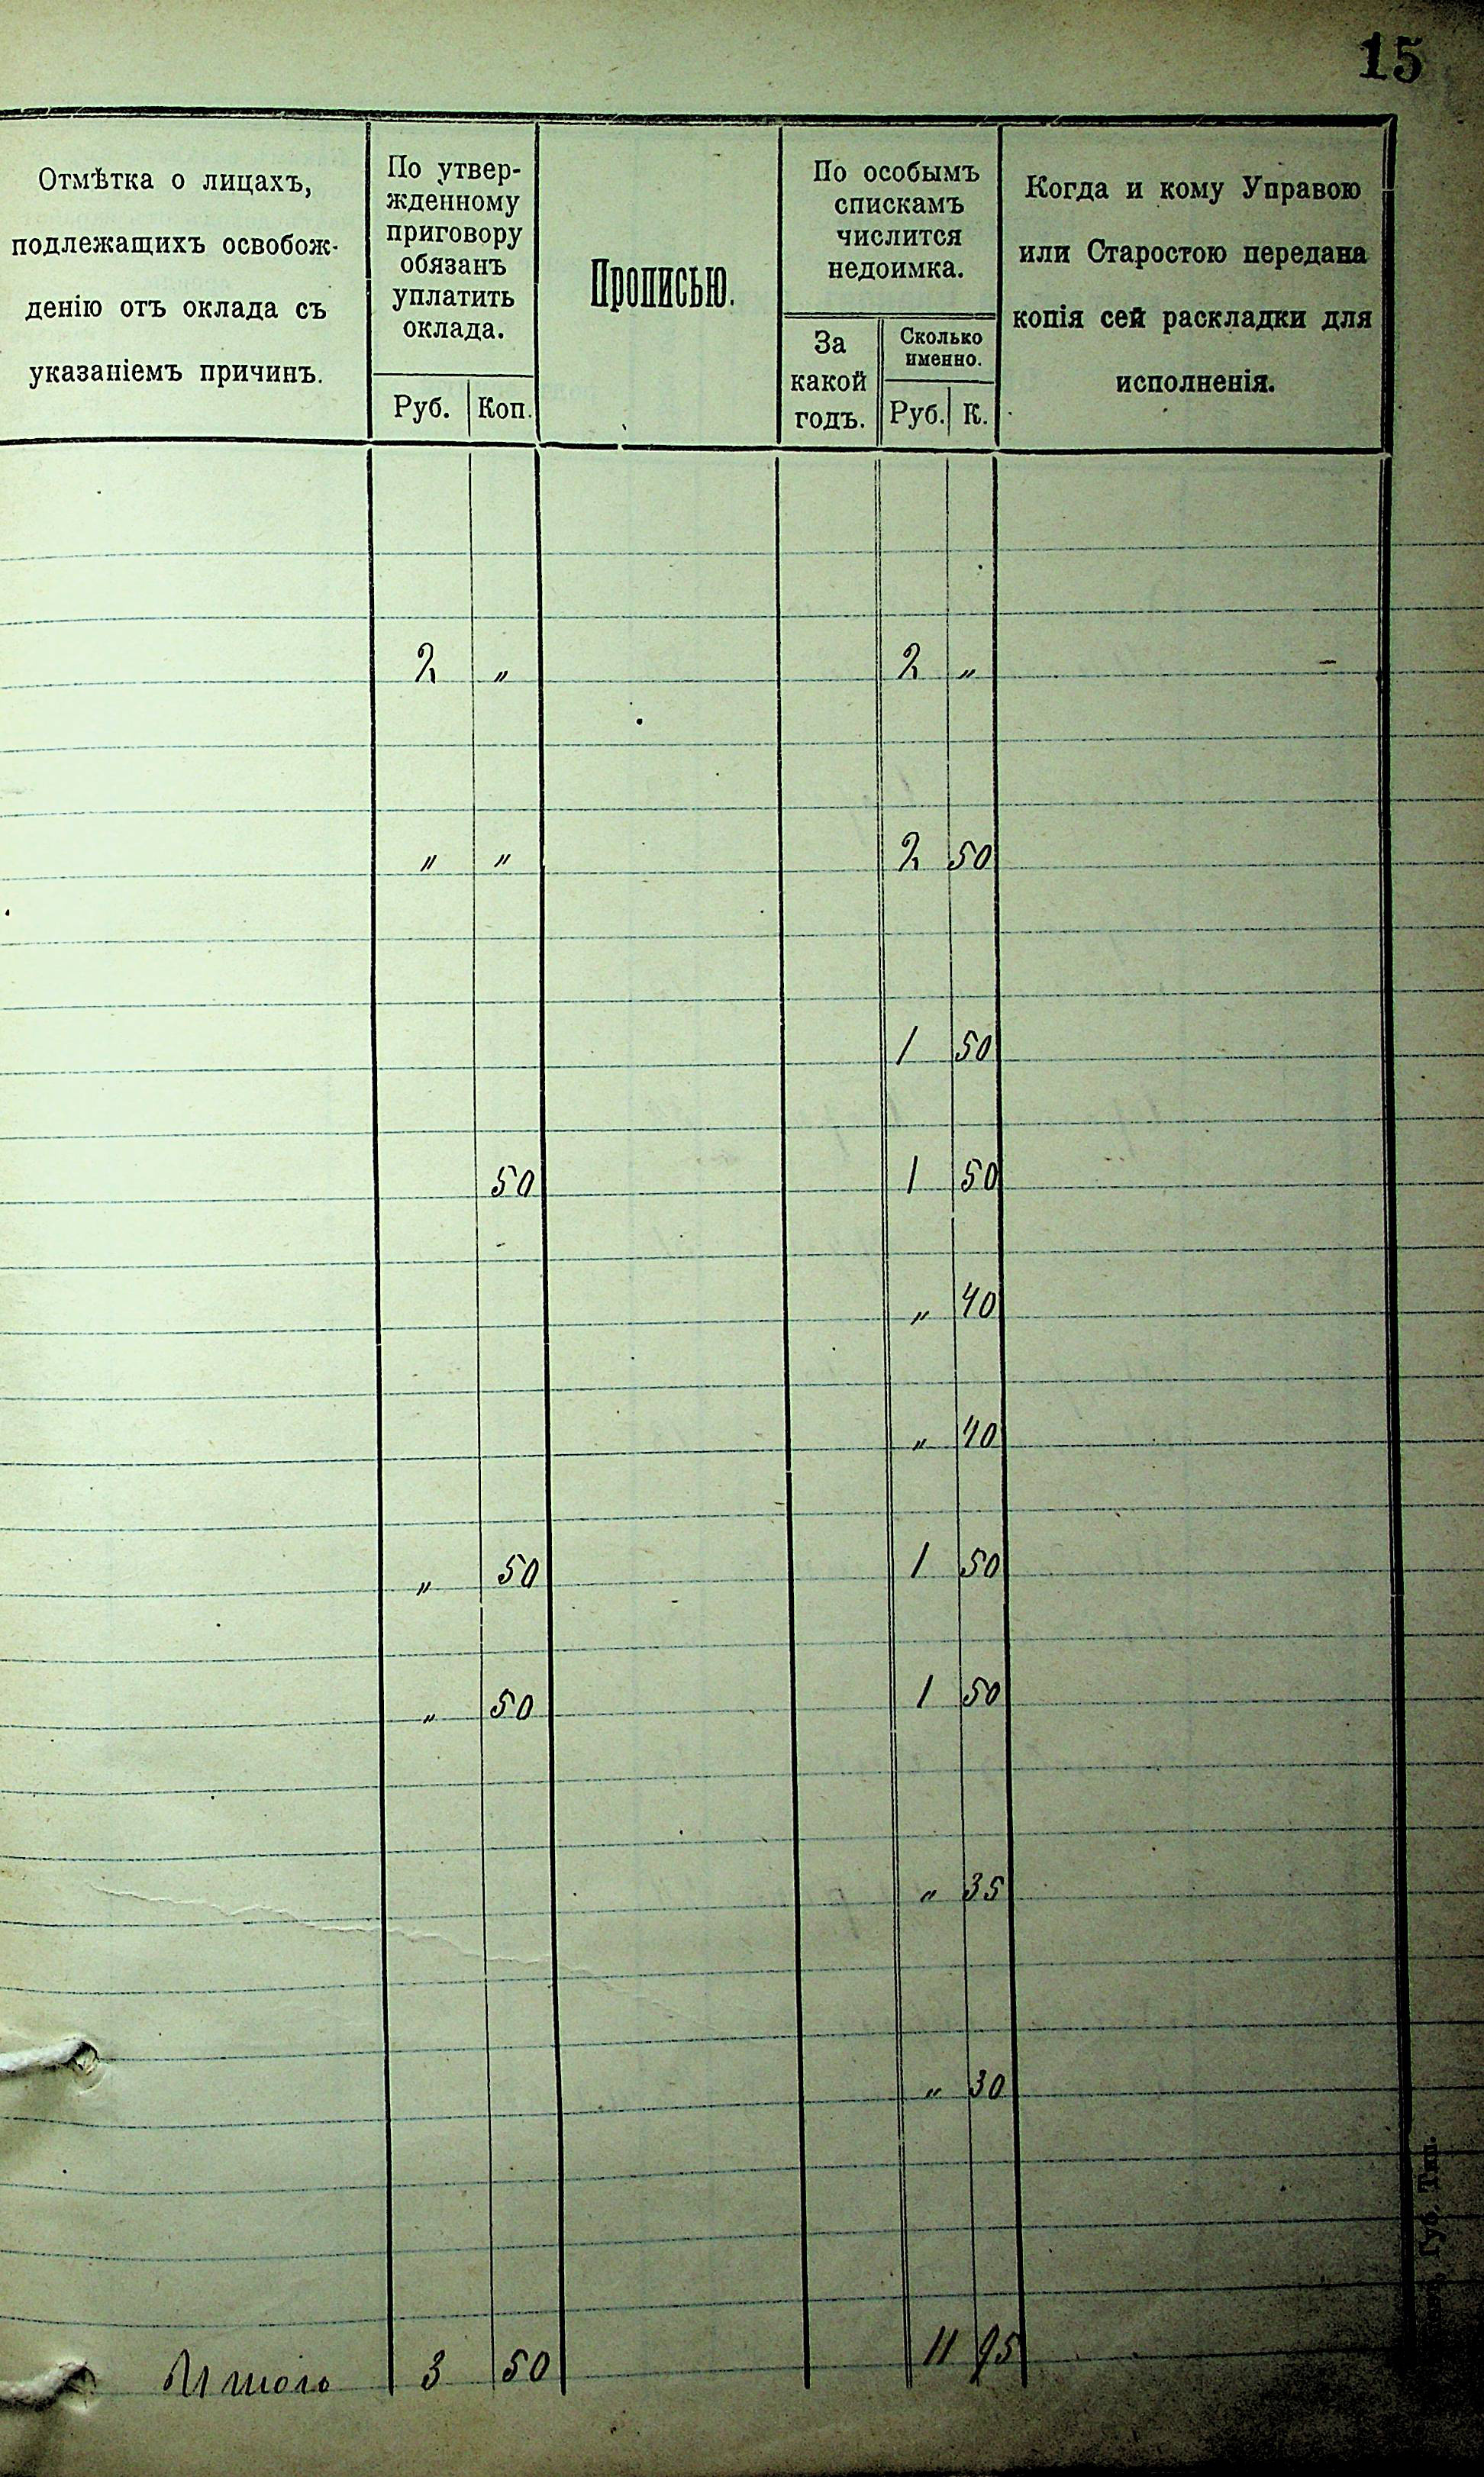 15
Отмѣтка о лицахъ,
подлежащихъ освобож-
денію отъ оклада съ
указаніемъ причинъ.
По утвер-
жденному
приговору
обязанъ
уплатить
оклада.
Руб. Коп.
Прописью.
По особымъ
спискамъ
числится
недоимка.
За
какой
годъ.
Сколько
именно.
Руб. К.
Когда и кому Управою
или Старостою передана
копія сей раскладки для
исполненія.
2 „ 2 „
„ „ 2 50
1 50
50 1 50
„ 40
„ 40
„ 50 1 50
„ 50 1 50
„ 35
„ 30
Итого 3 50 11 95
Губ. Тип.